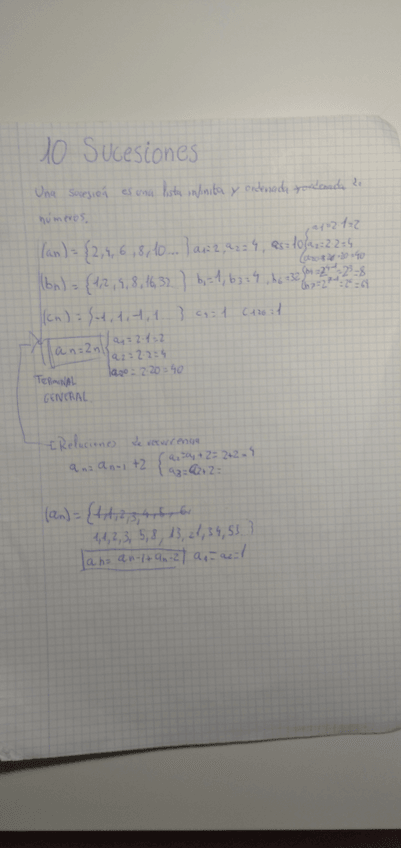 10 Sucesiones
Una sucesión es una lista infinita y ordenada de
números.
(an) = {2, 4, 6, 8, 10 ... } a1=2, a2=4, a5=10 { a1=2·1=2
a2=2·2=4
(bn) = {1, 2, 4, 8, 16, 32 } b1=1, b3=4, b6=32
(cn) = {-1, 1, -1, 1... } c2=1 c120=1
an=2n { a1=2·1=2
a2=2·2=4
a20=2·20=40
TERMINAL
GENERAL
Relaciones de recurrencia
an= an-1 +2 { a2=a1+2=2+2=4
(an) = {1, 1, 2, 3, 4, 5, 6
1, 1, 2, 3, 5, 8, 13, 21, 34, 53 }
an= an-1 + an-2 a1=a2=1